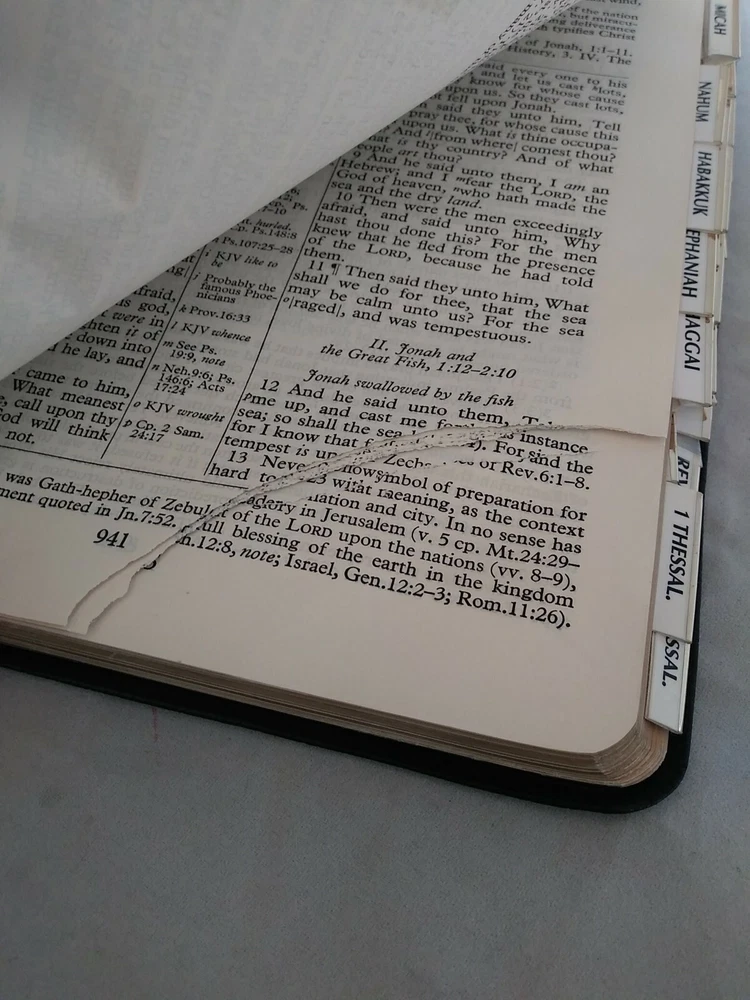 of the nation
but miracu-
ing deliverance
typifies Christ
of Jonah, 1:1–11.
History, 3. IV. The
said every one to his
and let us cast lots,
know for whose cause
upon us. So they cast lots,
fell upon Jonah.
said they unto him, Tell
pray thee, for whose cause this
upon us. What is thine occupa-
And |from where| comest thou?
is thy country? And of what
people art thou?
9 And he said unto them, I am an
Hebrew; and I mfear the LORD, the
God of heaven, nwho hath made the
sea and the dry land.
10 Then were the men exceedingly
afraid, and said unto him, Why
hast thou done this? For the men
knew that he fled from the presence
of the LORD, because he had told
them.
11 ¶ Then said they unto him, What
shall we do for thee, that the sea
may be calm unto us? For the sea
o|raged|, and was tempestuous.
II. Jonah and
the Great Fish, 1:12–2:10
Jonah swallowed by the fish
12 And he said unto them,
pme up, and cast me
sea; so shall the sea
for I know that
tempest is
13
hard
Ps.
Ps.148:8
Ps.107:25–28
i KJV like to
be
j Probably the
famous Phoe-
nicians
k Prov.16:33
l KJV whence
m See Ps.
19:9, note
n Neh.9:6; Ps.
146:6; Acts
17:24
o KJV wrought
p Cp. 2 Sam.
24:17
afraid,
god,
were in
it of
down into
he lay, and
came to him,
What meanest
call upon thy
God will think
not.
was Gath-hepher of
quoted in Jn.7:52.
941
instance
For and the
of Rev.6:1–8.
symbol of preparation for
meaning, as the context
nation and city. In no sense has
in Jerusalem (v. 5 cp. Mt.24:29–
of the LORD upon the nations (vv. 8–9),
blessing of the earth in the kingdom
12:8, note; Israel, Gen.12:2–3; Rom.11:26).
MICAH
NAHUM
HABAKKUK
EPHANIAH
AGGAI
RE
1 THESSAL.
SSAL.